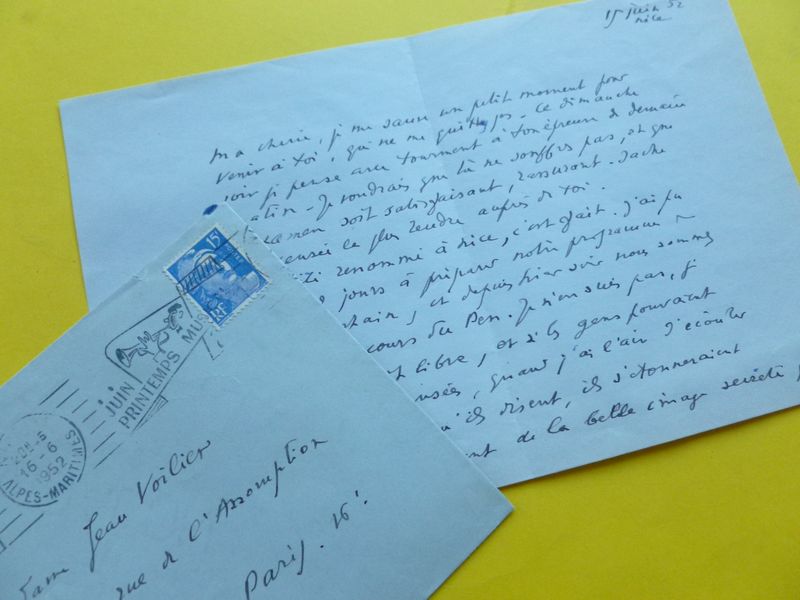 15 juin 52
nice
ma chérie, je me sauve un petit moment pour
venir à toi, qui ne me quittes pas - Ce dimanche
soir je pense avec tourment à ton épreuve de demain
matin - Je voudrais que tu ne souffres pas, et que
examen soit satisfaisant, rassurant. Sache
pensée la plus tendre auprès de toi.
à nice, c'est gai. J'ai pu
jours à préparer notre programme
et depuis hier soir nous sommes
cours du Pen. Je n'en suis pas, je
libre, et si les gens pouvaient
pensées, quand j'ai l'air d'écouter
qu'ils disent, ils s'étonneraient
de la belle image secrète
15
RF
JUIN
PRINTEMPS MUS
16-6
1952
ALPES-MARITIMES
Jean Voilier
rue de l'Assomption
Paris. 16e